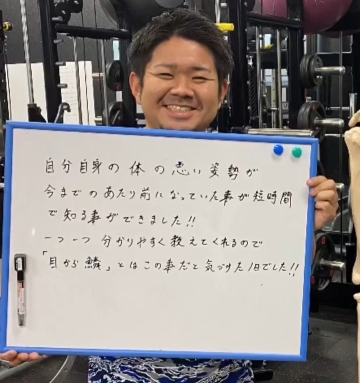 自分自身の体の悪い姿勢が
今までのあたり前になっていた事が短時間
で知る事ができました!!
一つ一つ分かりやすく教えてくれるので
「目から鱗」とはこの事だと気づけた1日でした!!